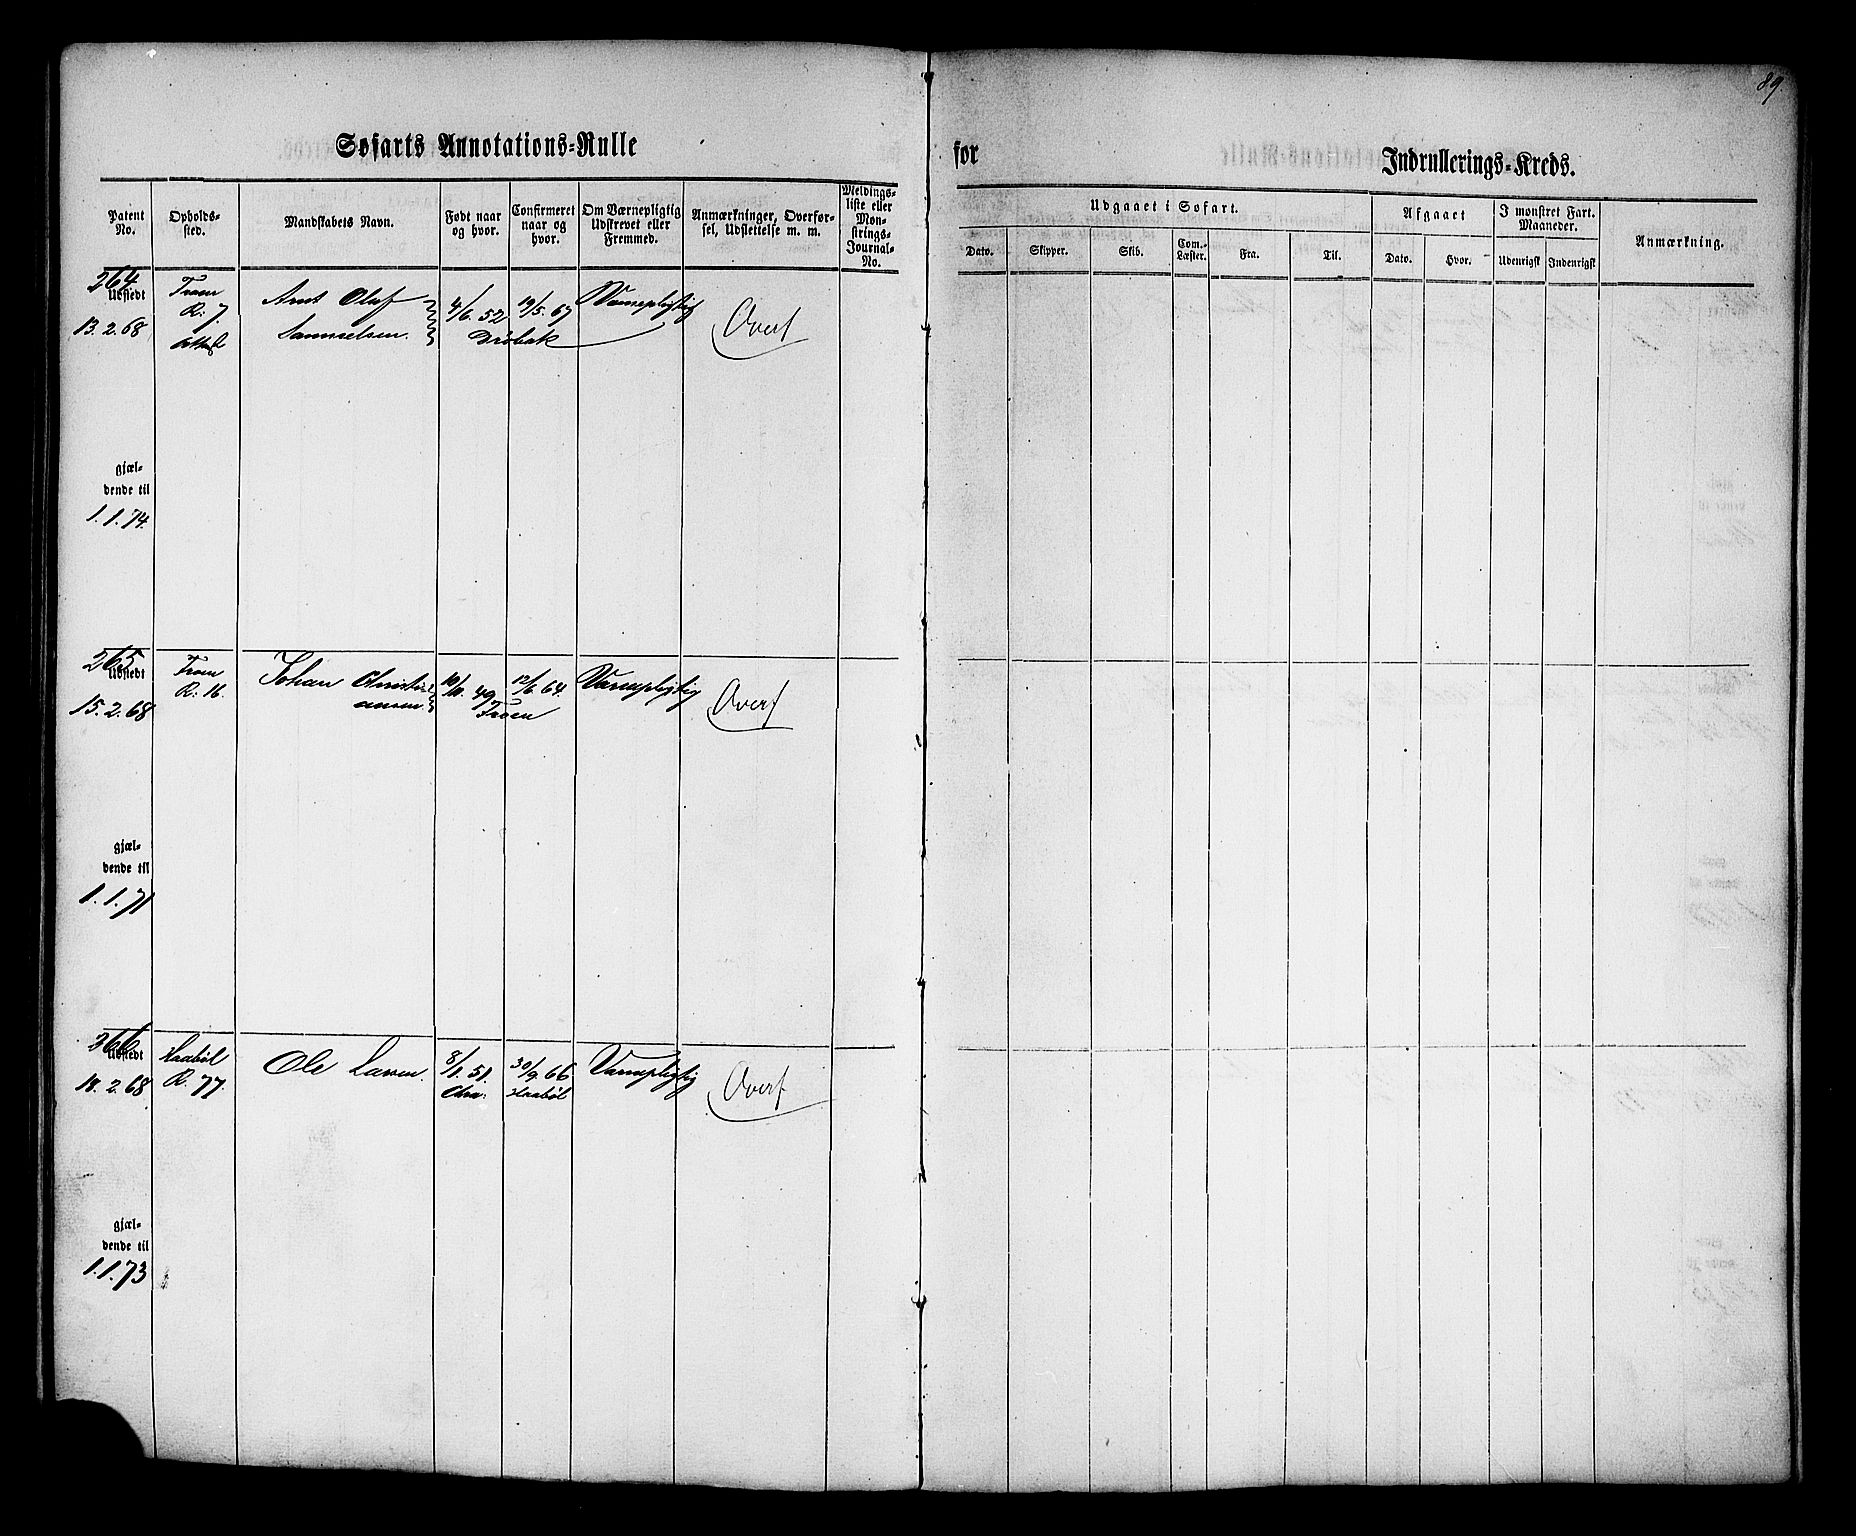 89.
Søfarts Annotations-Rulle
for
Indrullerings-Kreds.
Patent No.
Opholds-sted.
Mandskabets Navn.
Født naar og hvor.
Confirmeret naar og hvor.
Om Værnepligtig Udskrevet eller Fremmed.
Anmærkninger, Overførsel, Udslettelse m. m.
Meldings-liste eller Mon-strings-Journal-No.
Udgaaet i Søfart.
Afgaaet
I mønstret Fart. Maaneder.
Anmærkning.
Dato.
Skipper.
Skib.
Com.-Læster.
Fra.
Til.
Dato.
Hvor.
Udenrigsk
Indenrigsk
264
Udstedt
13.2.68
R. 7.
Arnt Olaf
Samuelsen.
4/6. 52
19/5. 67
Drøbak
Værnepligtig
Overf
gjæl-
dende til
1.1.74.
265
Udstedt
15.2.68
Froen
R. 16.
Johan Christi
ansen
49
12/6 64.
Froen
Værnepligtig
Overf
gjæl-
dende til
1.1.71
266
Udstedt
18.2.68
Haabøl
R. 77.
Ole Larsen.
8/1 51.
Chra.
30/9 66
Haabøl
Værnepligtig
Overf
gjæl-
dende til
1.1.73